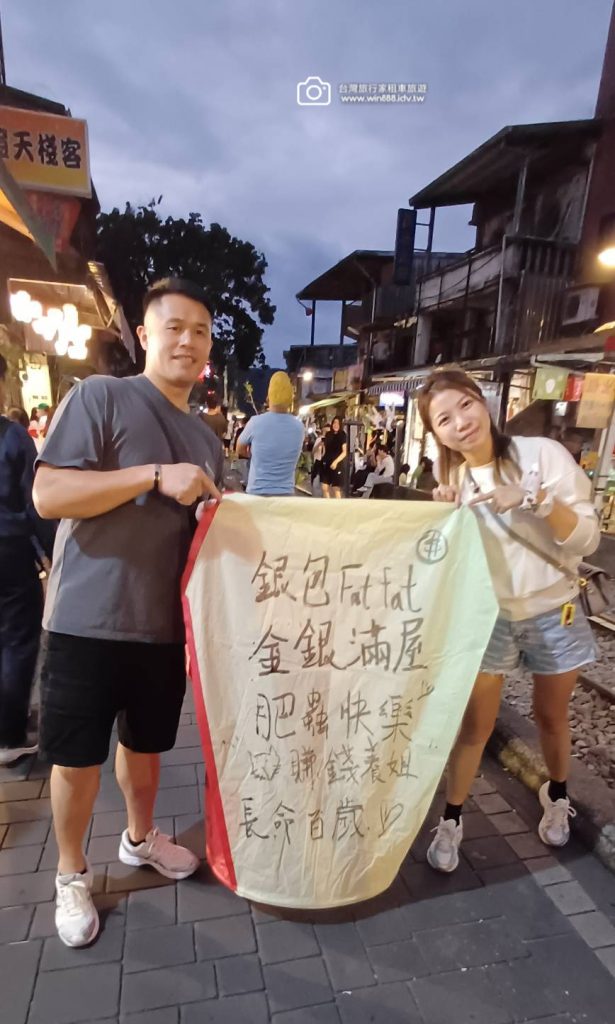 台灣旅行家租車旅遊
www.win888.idv.tw
天棧客
銀包Fat fat
金銀滿屋
肥蟲快樂
賺錢養姐
長命百歲